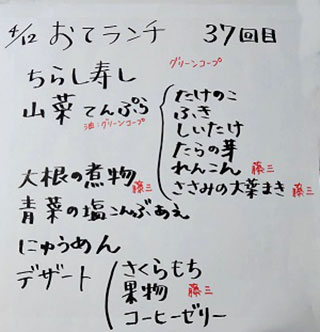 4/12 おてランチ 37回目
ちらし寿し グリーンコープ
山菜てんぷら
油:グリーンコープ
たけのこ
ふき
しいたけ
たらの芽
れんこん 藤三
ささみの大葉まき 藤三
大根の煮物 藤三
青菜の塩こんぶあえ
にゅうめん
デザート
さくらもち
果物 藤三
コーヒーゼリー